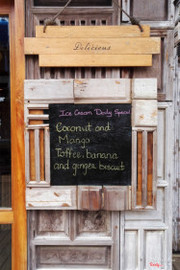 Delicious
Ice Cream Daily Special
Coconut and
Mango
Toffee, banana
and ginger biscuit